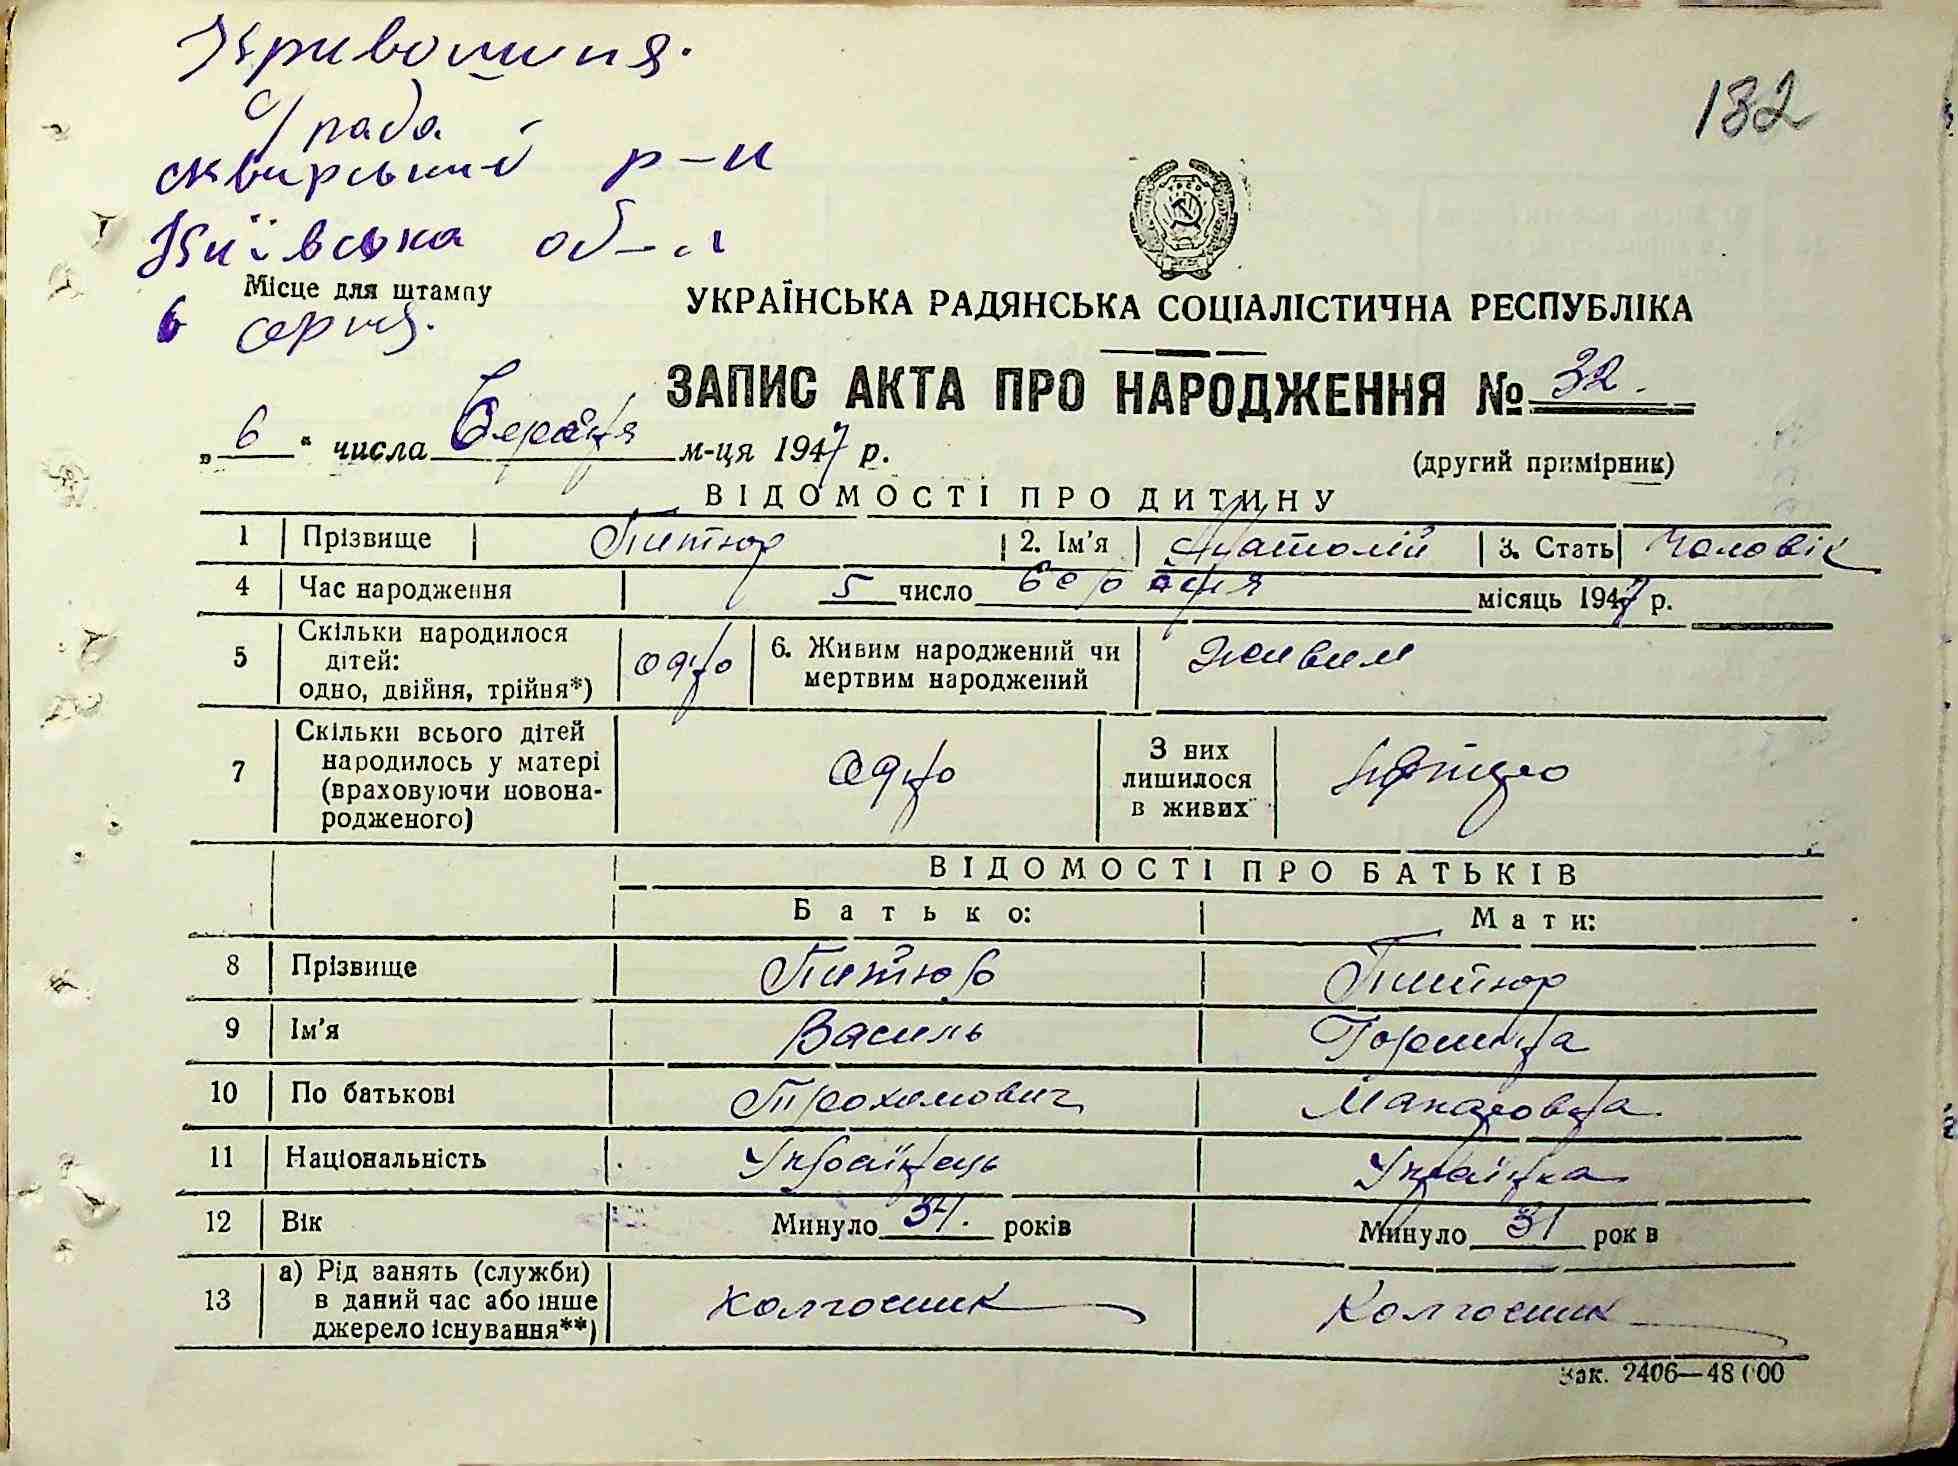 Кривошиїн.
с/рада
132
сквирський р-н
Київська обл
Місце для штампу
УКРАЇНСЬКА РАДЯНСЬКА СОЦІАЛІСТИЧНА РЕСПУБЛІКА
6 серпня.
ЗАПИС АКТА ПРО НАРОДЖЕННЯ № 32.
„6“ числа березня м-ця 1947 р.
(другий примірник)
ВІДОМОСТІ ПРО ДИТИНУ
1 Прізвище Питюр 2. Ім'я Анатолій 3. Стать Чоловік
4 Час народження 5 число березня місяць 1947 р.
5 Скільки народилося дітей: одно, двійня, трійня*) одно 6. Живим народжений чи мертвим народжений живим
7 Скільки всього дітей народилось у матері (враховуючи новонародженого) одно З них лишилося в живих
ВІДОМОСТІ ПРО БАТЬКІВ
Батько: Мати:
8 Прізвище Питюр Питюр
9 Ім'я Василь Горпина
10 По батькові Трохимович Макаровна
11 Національність Українець Українка
12 Вік Минуло 34. років Минуло 31 рок в
13 а) Рід занять (служби) в даний час або інше джерело існування**) колгосник Колгосник
Зак. 2406—48 000